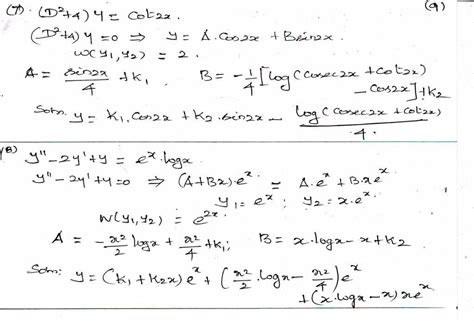 (7). (D²+4) y = Cot2x. (9)
(D²+4) y = 0 ⇒ y = A.Cos2x + Bsin2x.
W(y₁,y₂) = 2.
A = -sin2x/4 + k₁ B = -1/4 [log(Cosec2x + Cot2x) - Cos2x] + k₂
Soln. y = K₁.Cos2x + K₂.sin2x - log(Cosec2x + Cot2x)/4.
(8) y'' - 2y' + y = eˣ.logx.
y'' - 2y' + y = 0 ⇒ (A+Bx).eˣ = A.eˣ + B.xeˣ
y₁ = eˣ ; y₂ = x.eˣ.
W(y₁,y₂) = e²ˣ.
A = -x²/2 logx + x²/4 + k₁; B = x.logx - x + k₂
Soln: y = (K₁ + K₂x) eˣ + (x²/2 .logx - x²/4) eˣ
+ (x.logx - x) xeˣ